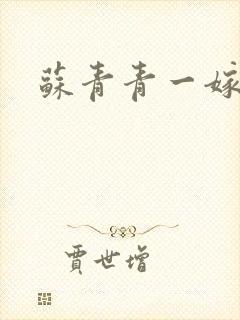 蘇青青一嫁
賈世增